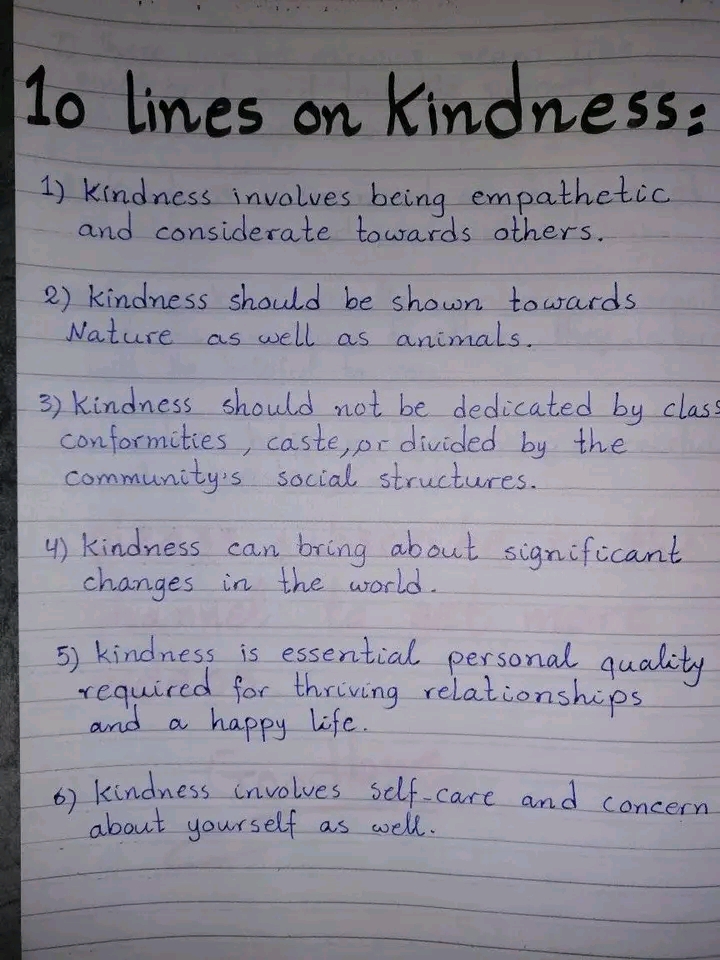 10 lines on Kindness:
1) Kindness involves being empathetic
and considerate towards others.
2) kindness should be shown towards
Nature as well as animals.
3) Kindness should not be dedicated by class
conformities, caste, or divided by the
community's social structures.
4) kindness can bring about significant
changes in the world.
5) kindness is essential personal quality
required for thriving relationships
and a happy life.
6) kindness involves self-care and concern
about yourself as well.